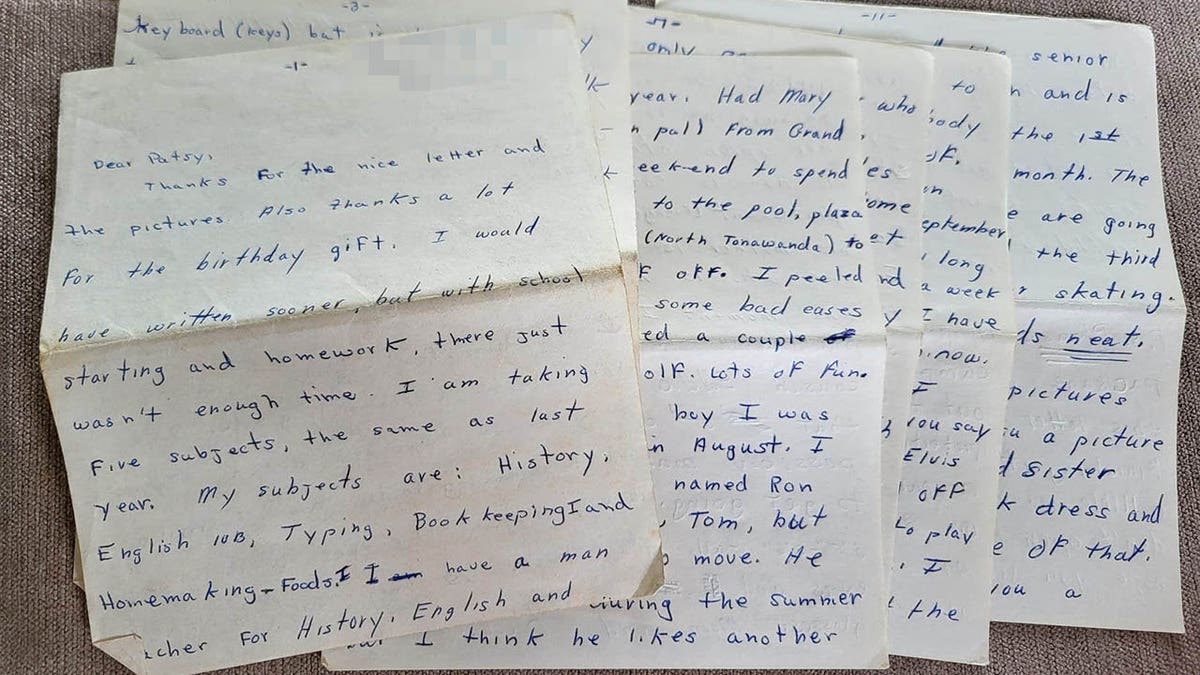 -3-
Key board (keys) but
-1-
Dear Patsy,
Thanks For the nice letter and
the pictures. Also thanks a lot
For the birthday giFt. I would
have written sooner, but with school
starting and homework, there just
wasn't enough time. I am taking
Five subjects, the same as last
year. My subjects are: History,
English 10B, Typing, Book keeping I and
Homemaking - Foods. I have a man
acher For History. English and
only
year. Had Mary
n pal) From Grand
eek-end to spend
to the pool, plaza
(North Tonawanda) to
F oFF. I peeled
some bad eases
ed a couple
olF. Lots oF Fun.
boy I was
n August. I
named Ron
, Tom, but
move. He
during the summer
I think he likes another
who
es
ome
et
nd
y
to
body
oF.
on
eptember
long
a week
I have
now.
I
you say
Elvis
oFF
to play
I
the
-11-
senior
n and is
the 1st
month. The
e are going
the third
skating.
ds neat.
pictures
u a picture
d sister
k dress and
e oF that.
you a